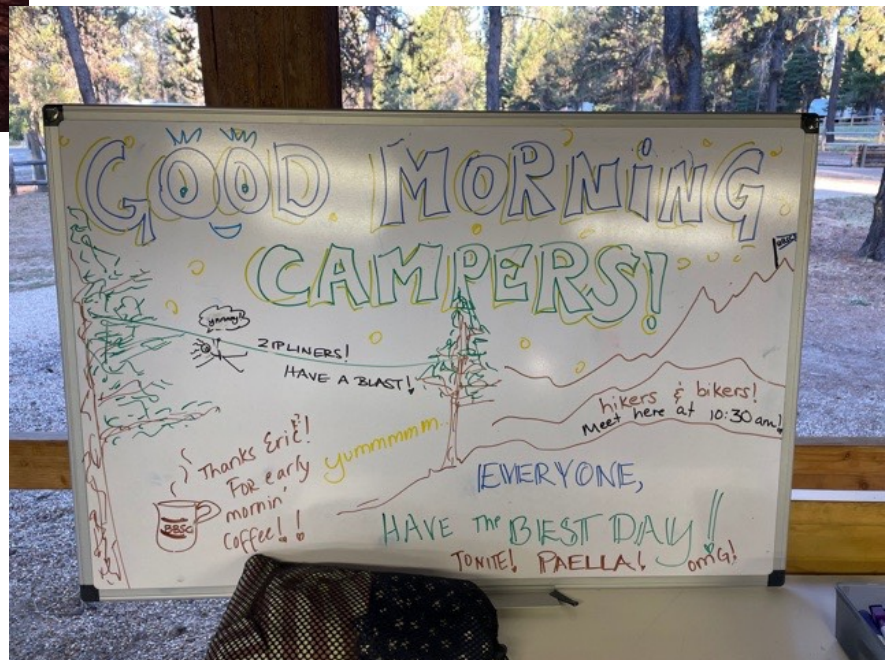 GOOD MORNING
CAMPERS!
ZIPLINERS!
HAVE A BLAST!
hikers & bikers!
Meet here at 10:30 am!
Thanks Eric!
For early
mornin'
coffee!!
BBSG
yummmmm...
EVERYONE,
HAVE the BEST DAY!
TONITE! PAELLA! OMG!